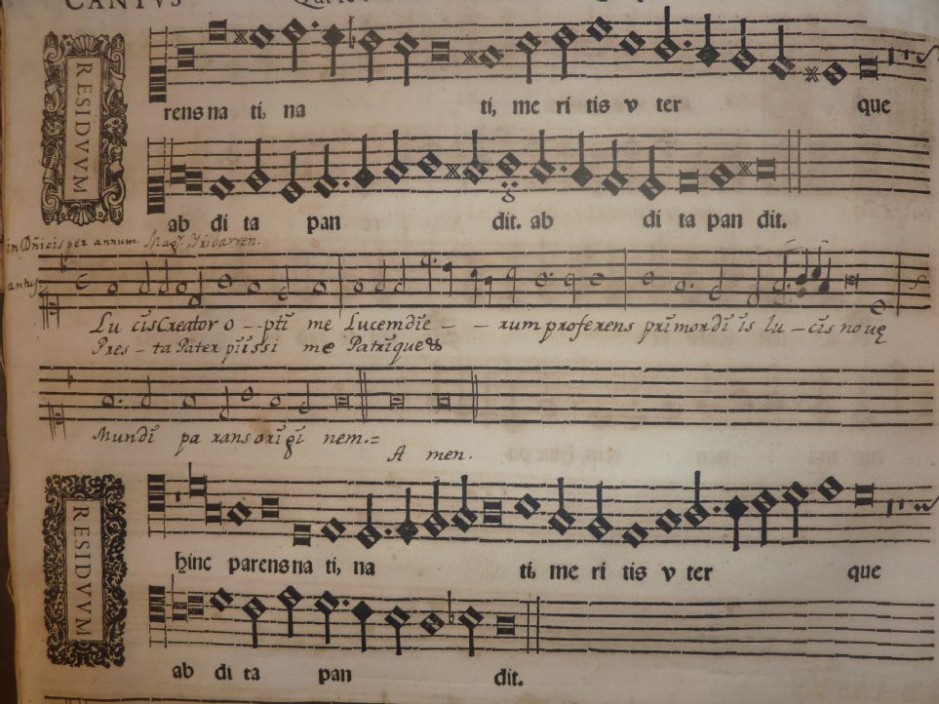 CANTVS
RESIDVVM
rens na ti, na ti, me ri tis v ter que
ab di ta pan dit. ab di ta pan dit.
in Dñicis per annum. Mag. Yribarren.
Lu cis Creator o -- pti me Lucem die - - rum proferens pri mordi is lu - cis no uę
Pres - ta Pater piissi me Patrique
Mundi pa rans ori gi nem.=
A men.
RESIDVVM
hinc parens na ti, na ti, me ri tis v ter que
ab di ta pan dit.